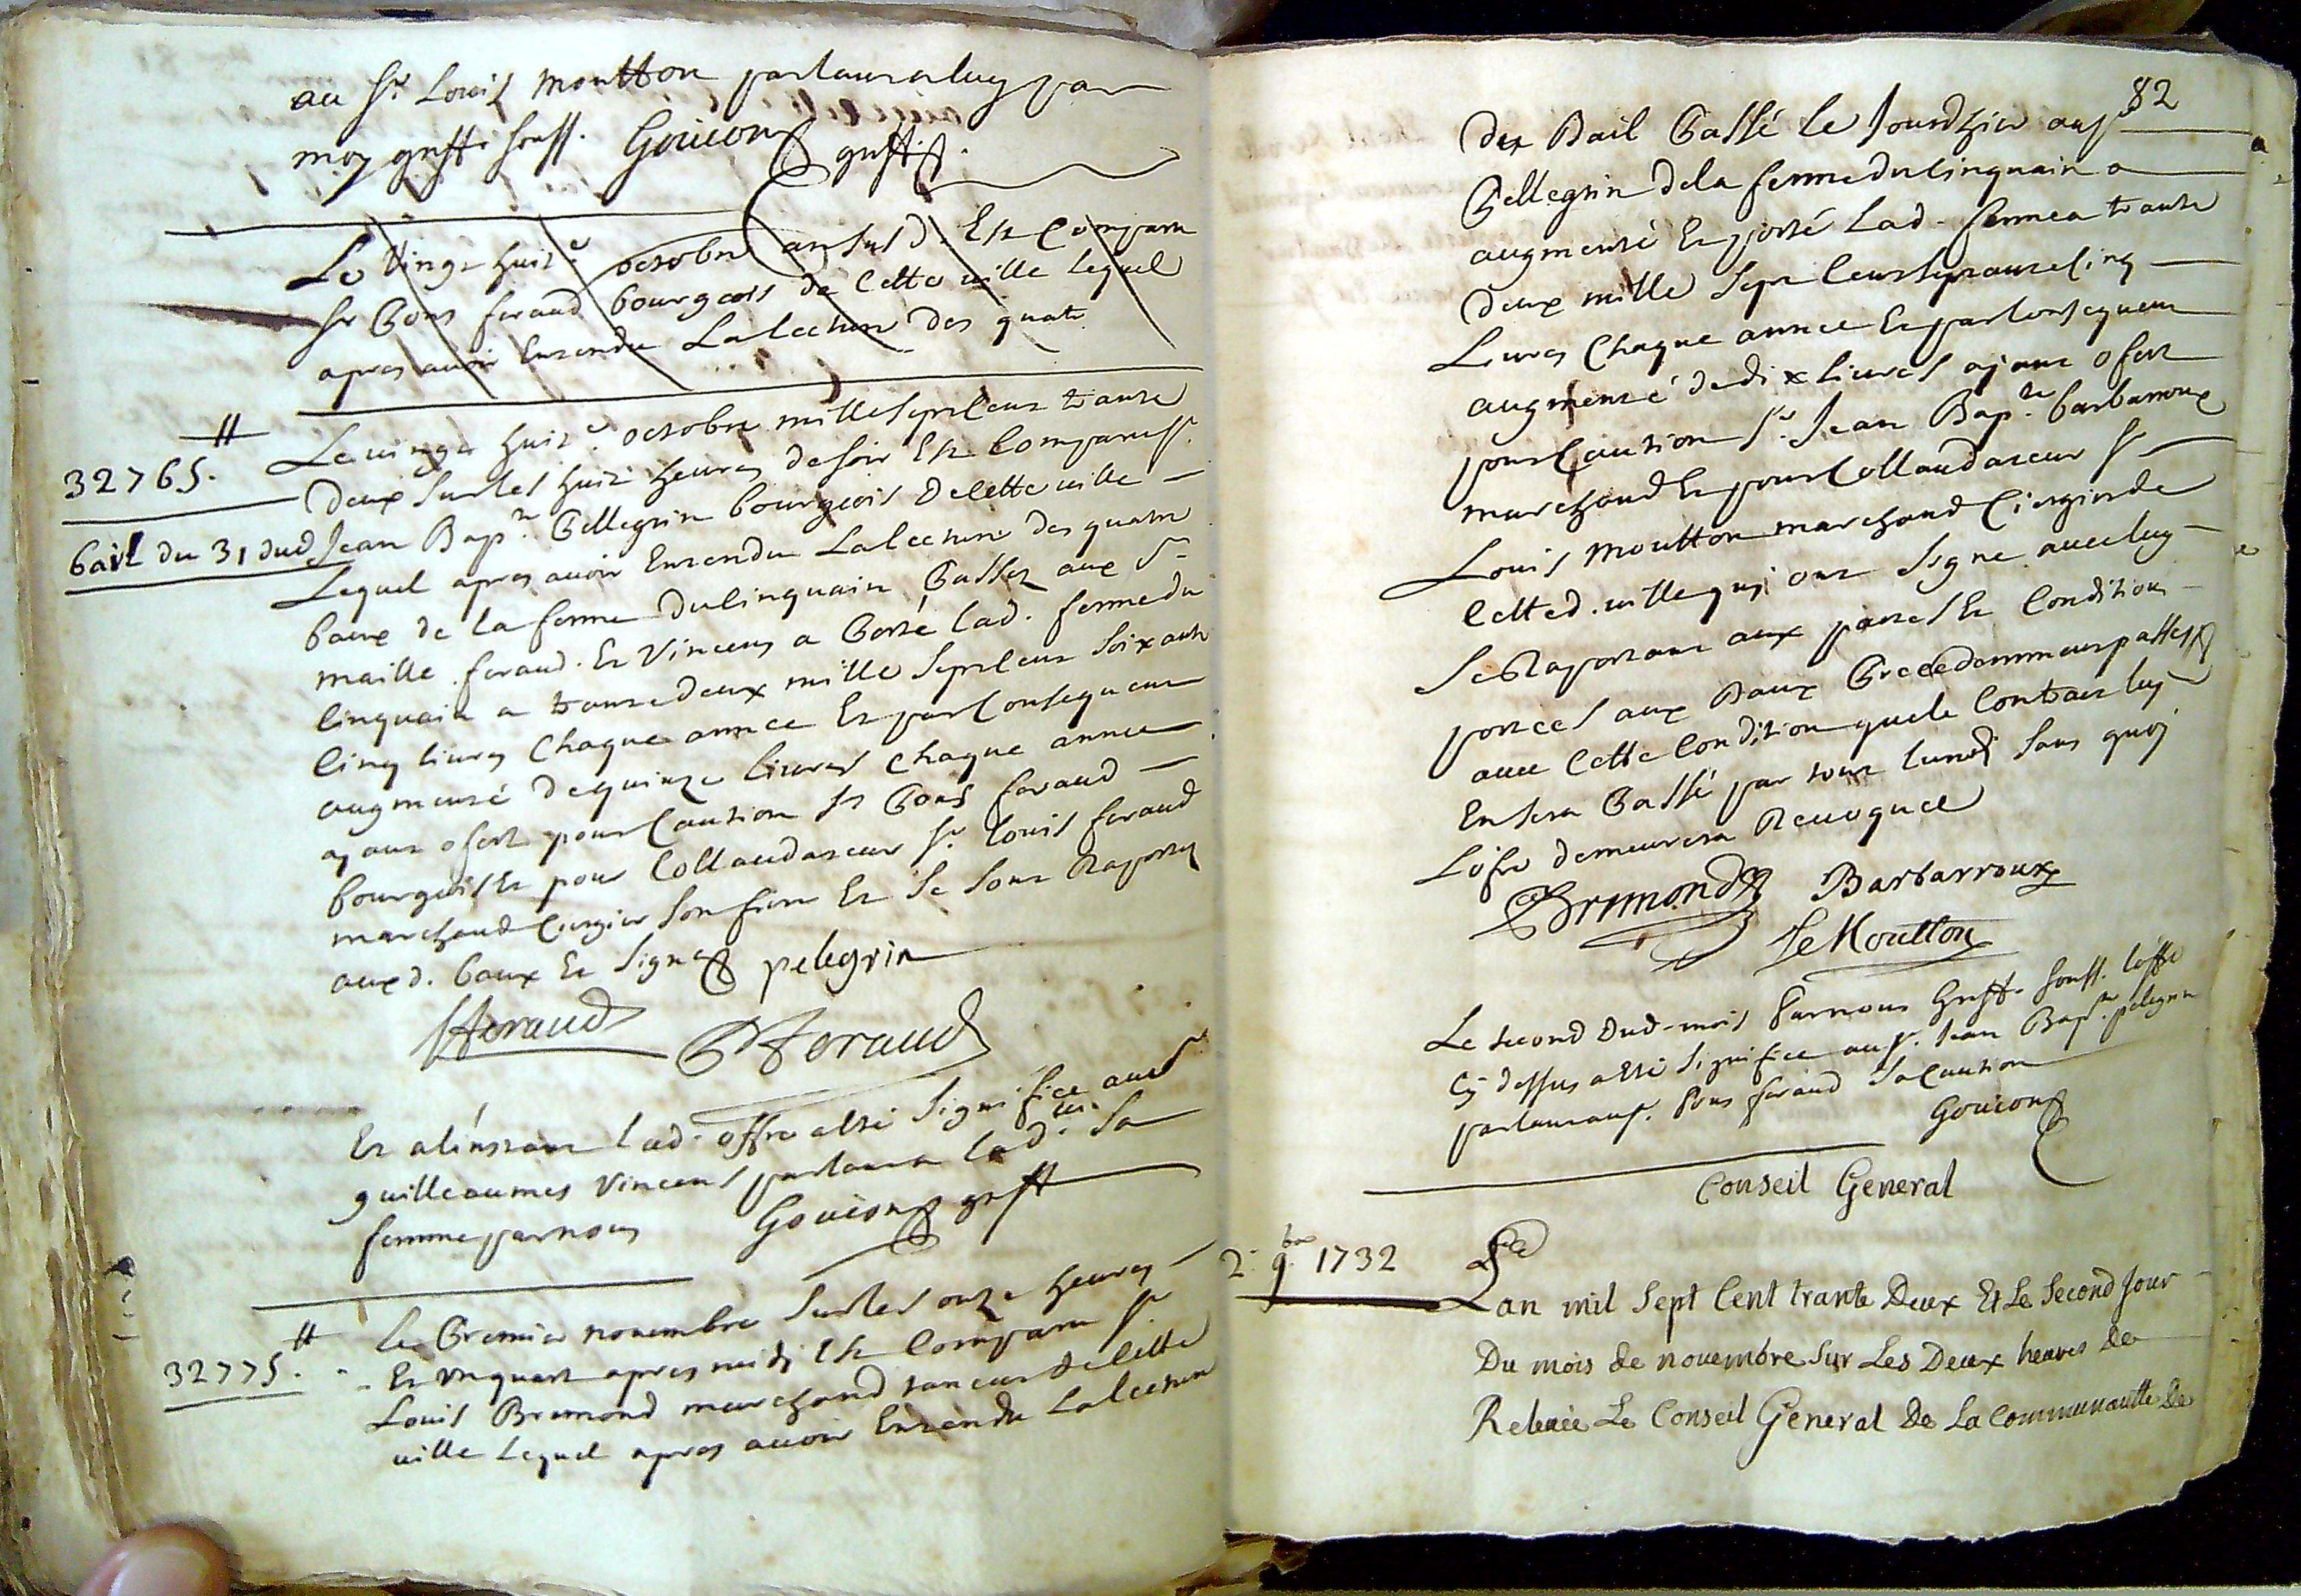 au Sr. Louis Moutton parlant a luy par
moy greff. souss. Gouion greff.
Le vingt huit e octobre an susd. Est Comparu
Sr Pons feraud bourgeois de Cette ville lequel
apres auoir Entendu La lecture des quatr
32765.tt
bail du 31 dud
Le vingt huit e. octobre mille sept cent trante
deux sur les huit heures de soir Est Comparu Sr.
Jean Bapte. Pellegrin bourgeois de Cette ville
Lequel apres auoir Entendu La lecture des quatre
baux de la ferme du linquain Passez aux Srs
maille feraud. Et Vincens a Porté lad. ferme du
linquain a trante deux mille sept cent soixante
cinq liures Chaque annee Et par Consequent
augmenté de quinze liures chaque annee
ayant ofert pour Caution Sr Pons feraud
bourgeois Et pour Collaudateur Sr. louis feraud
marchand Ciergier son frere Et se sont Raportes
auxd. baux Et signes pelegrin
Feraud P Feraud
Et a l'instant lad. offre a esté signifiee aud Sr
guilleaumes Vincens parlant a lad. lle. sa
femme par nous Gouion greff
32775.tt
le Premier nouembre sur les onze heures
Et un quart apres midi Est Comparu Sr.
Louis Bremond marchand tanneur de Cette
ville Lequel apres auoir Entendu La lecture
82
des Bail Passé le Jourdhier au Sr
Pellegrin de la ferme du linquain a
augmenté Et porté Lad. ferme a trante
deux mille sept Cent septante Cinq
Liures Chaque annee Et par Consequent
augmenté de dix liures ajant ofert
pour Caution Sr. Jean Bapte. barbarroux
marchand Et pour Collaudateur Sr
Louis Moutton marchand Ciergier de
Cette d. ville qui ont signe auec luy
Se Raportant aux pactes Et Conditions
portees aux Baux Precedemment passes
auec Cette Condition que le Contract luy
En sera Passé par tout lundi sans quoy
Lofre demeurera Reuoquee
Bremond Barbarroux
Le Moutton
Le second dud. mois Par nous Greff. souss. loffre
Cy dessus a esté signifiee au Sr. Jean Bapte. pelegrin
parlant au Sr. Pons feraud sa Caution
Gouion
Conseil General
2. 9bre 1732
Lan mil Sept Cent trante Deux Et Le Second Jour
Du mois de nouembre Sur Les Deux heures de
Releuée Le Conseil General De La Communautté de